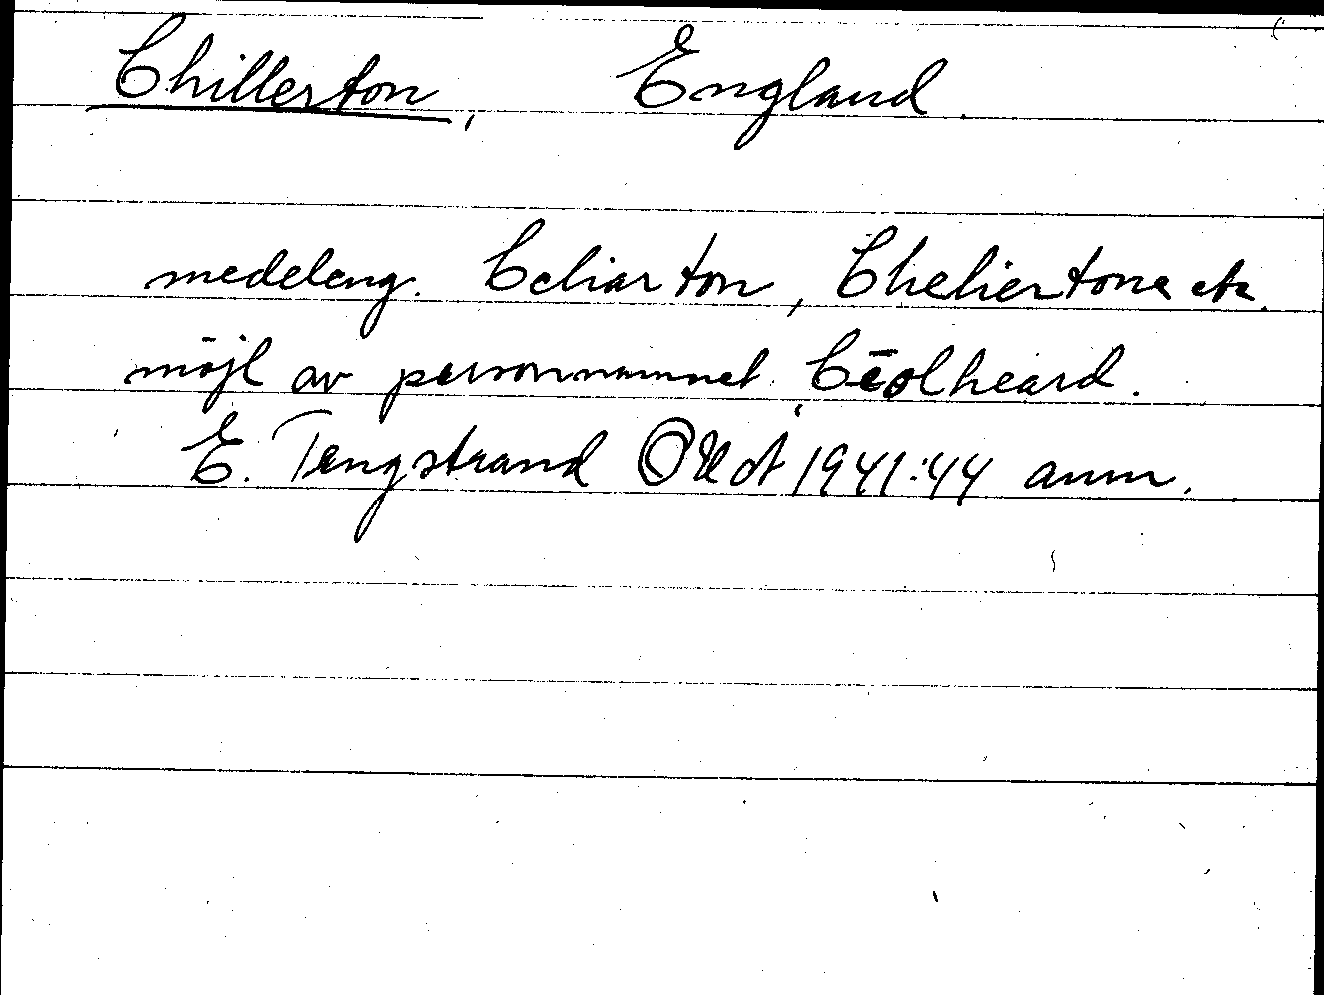 Chillerton, England.
medeleng. Celiarton, Cheliertone etc.
möjl av personnamnet Cēolheard.
E. Tengstrand OUÅ 1941:44 anm.